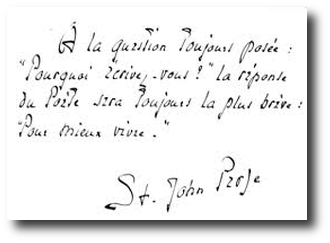 A la question toujours posée :
"Pourquoi écrivez-vous ?" la réponse
du Poète sera toujours la plus brève :
"Pour mieux vivre."
St. John Perse